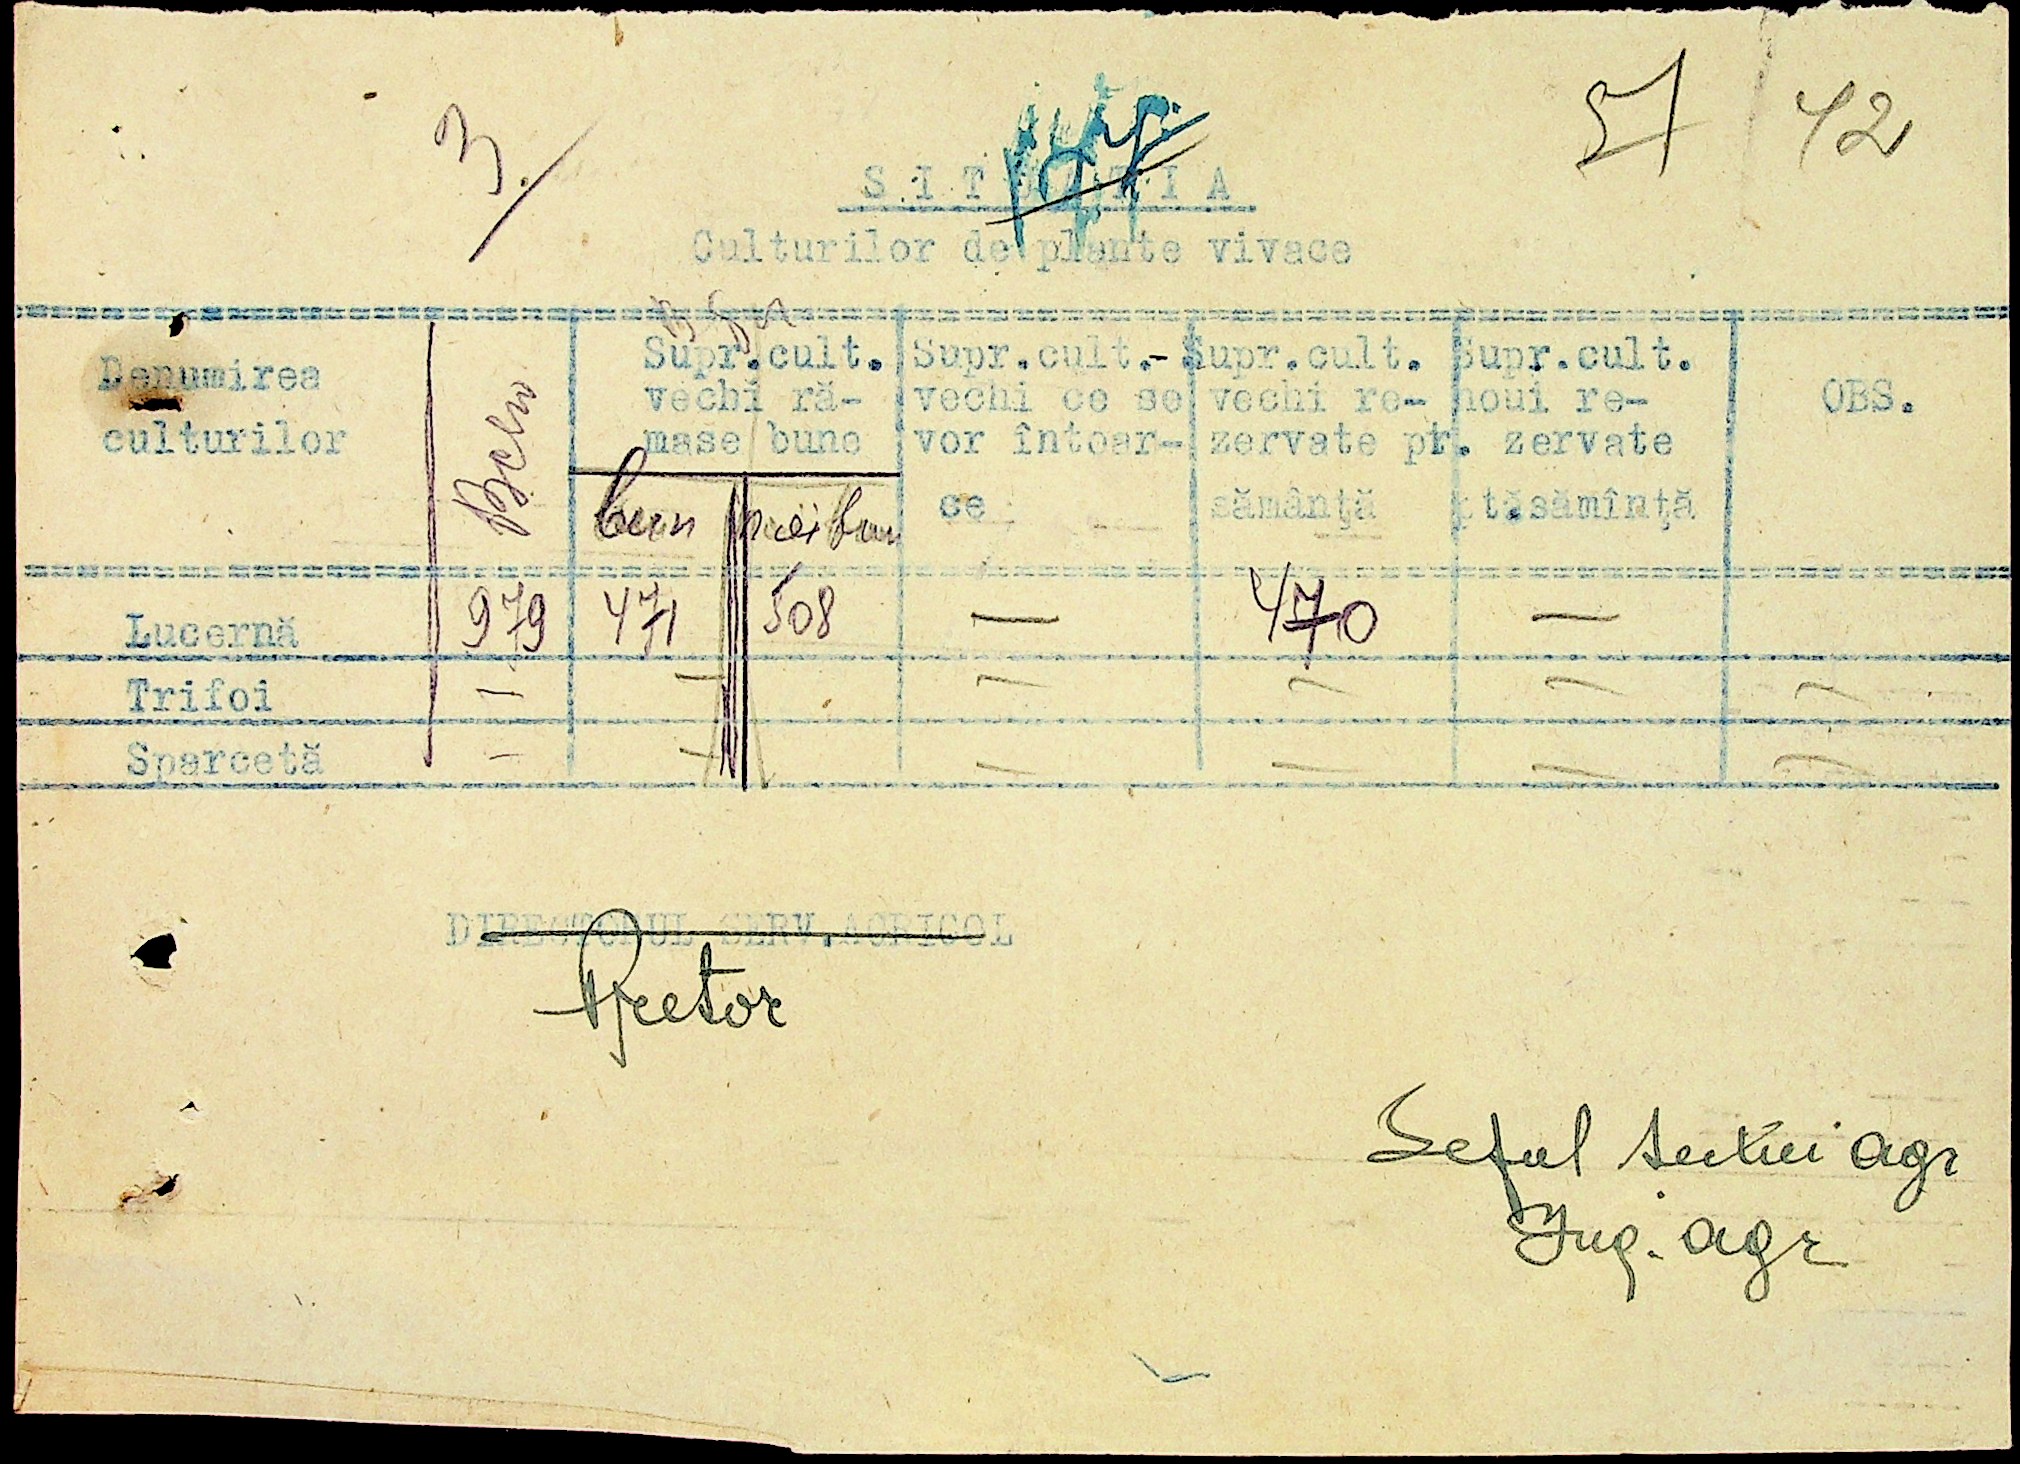 3.
57 42
SITUATIA
Culturilor de plante vivace
Denumirea culturilor
Supr.cult. vechi ră- mase bune
Supr.cult.- vechi ce se vor întoar- ce
Supr.cult. vechi re- zervate pt. sămânţă
Supr.cult. noui re- zervate ptăsămînţă
OBS.
bun
Lucernă 979 471 508 — 470 —
Trifoi — — — — — — —
Sparcetă — — — — — — —
DIRECTORUL SERV.AGRICOL
Pretor
Seful sectiei agr
Ing. agr